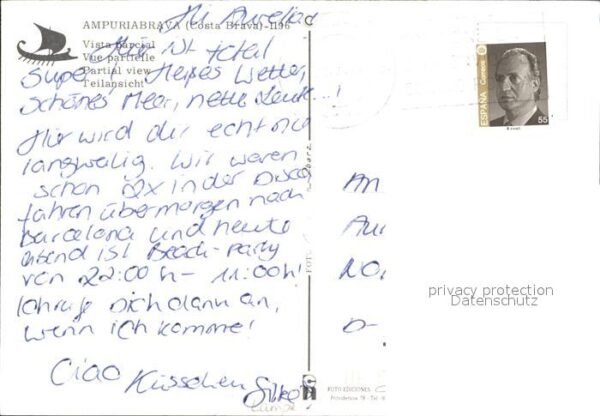 Hi Aurelia
AMPURIABRAVA (Costa Brava) - 1196
Vista parcial
Vue partielle
Partial view
Teilansicht
Hier ist total
super. Heißes Wetter,
schönes Meer, nette Leute...!
Hier wird dir echt nie
langweilig. Wir waren
schon 2x in der Disco
fahren übermorgen nach
Barcelona und heute
abend ist Beach-Party
von 22:00 h - 11:00 h!
Ich rufe Dich dann an,
wenn ich komme!
Ciao Küsschen Silke
An
D-
ESPAÑA Correos
55
privacy protection
Datenschutz